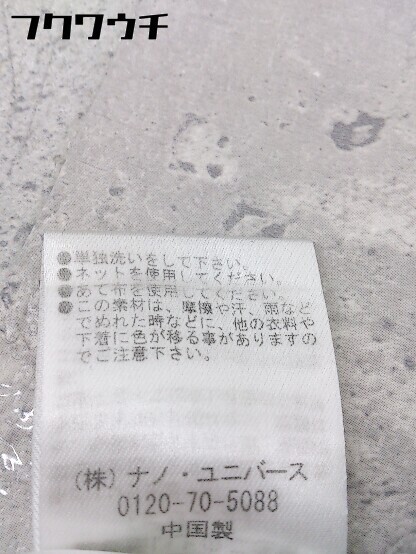 フクワウチ
●単独洗いをして下さい。
●ネットを使用してください。
●あて布を使用してください。
●この素材は、摩擦や汗、雨など
でぬれた時などに、他の衣料や
下着に色が移る事がありますの
でご注意下さい。
(株)ナノ・ユニバース
0120-70-5088
中国製